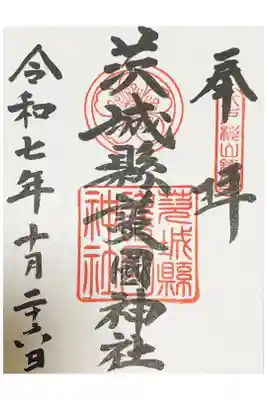 奉拝
茨城縣護國神社
令和七年十月二十六日
茨城縣
護國
神社